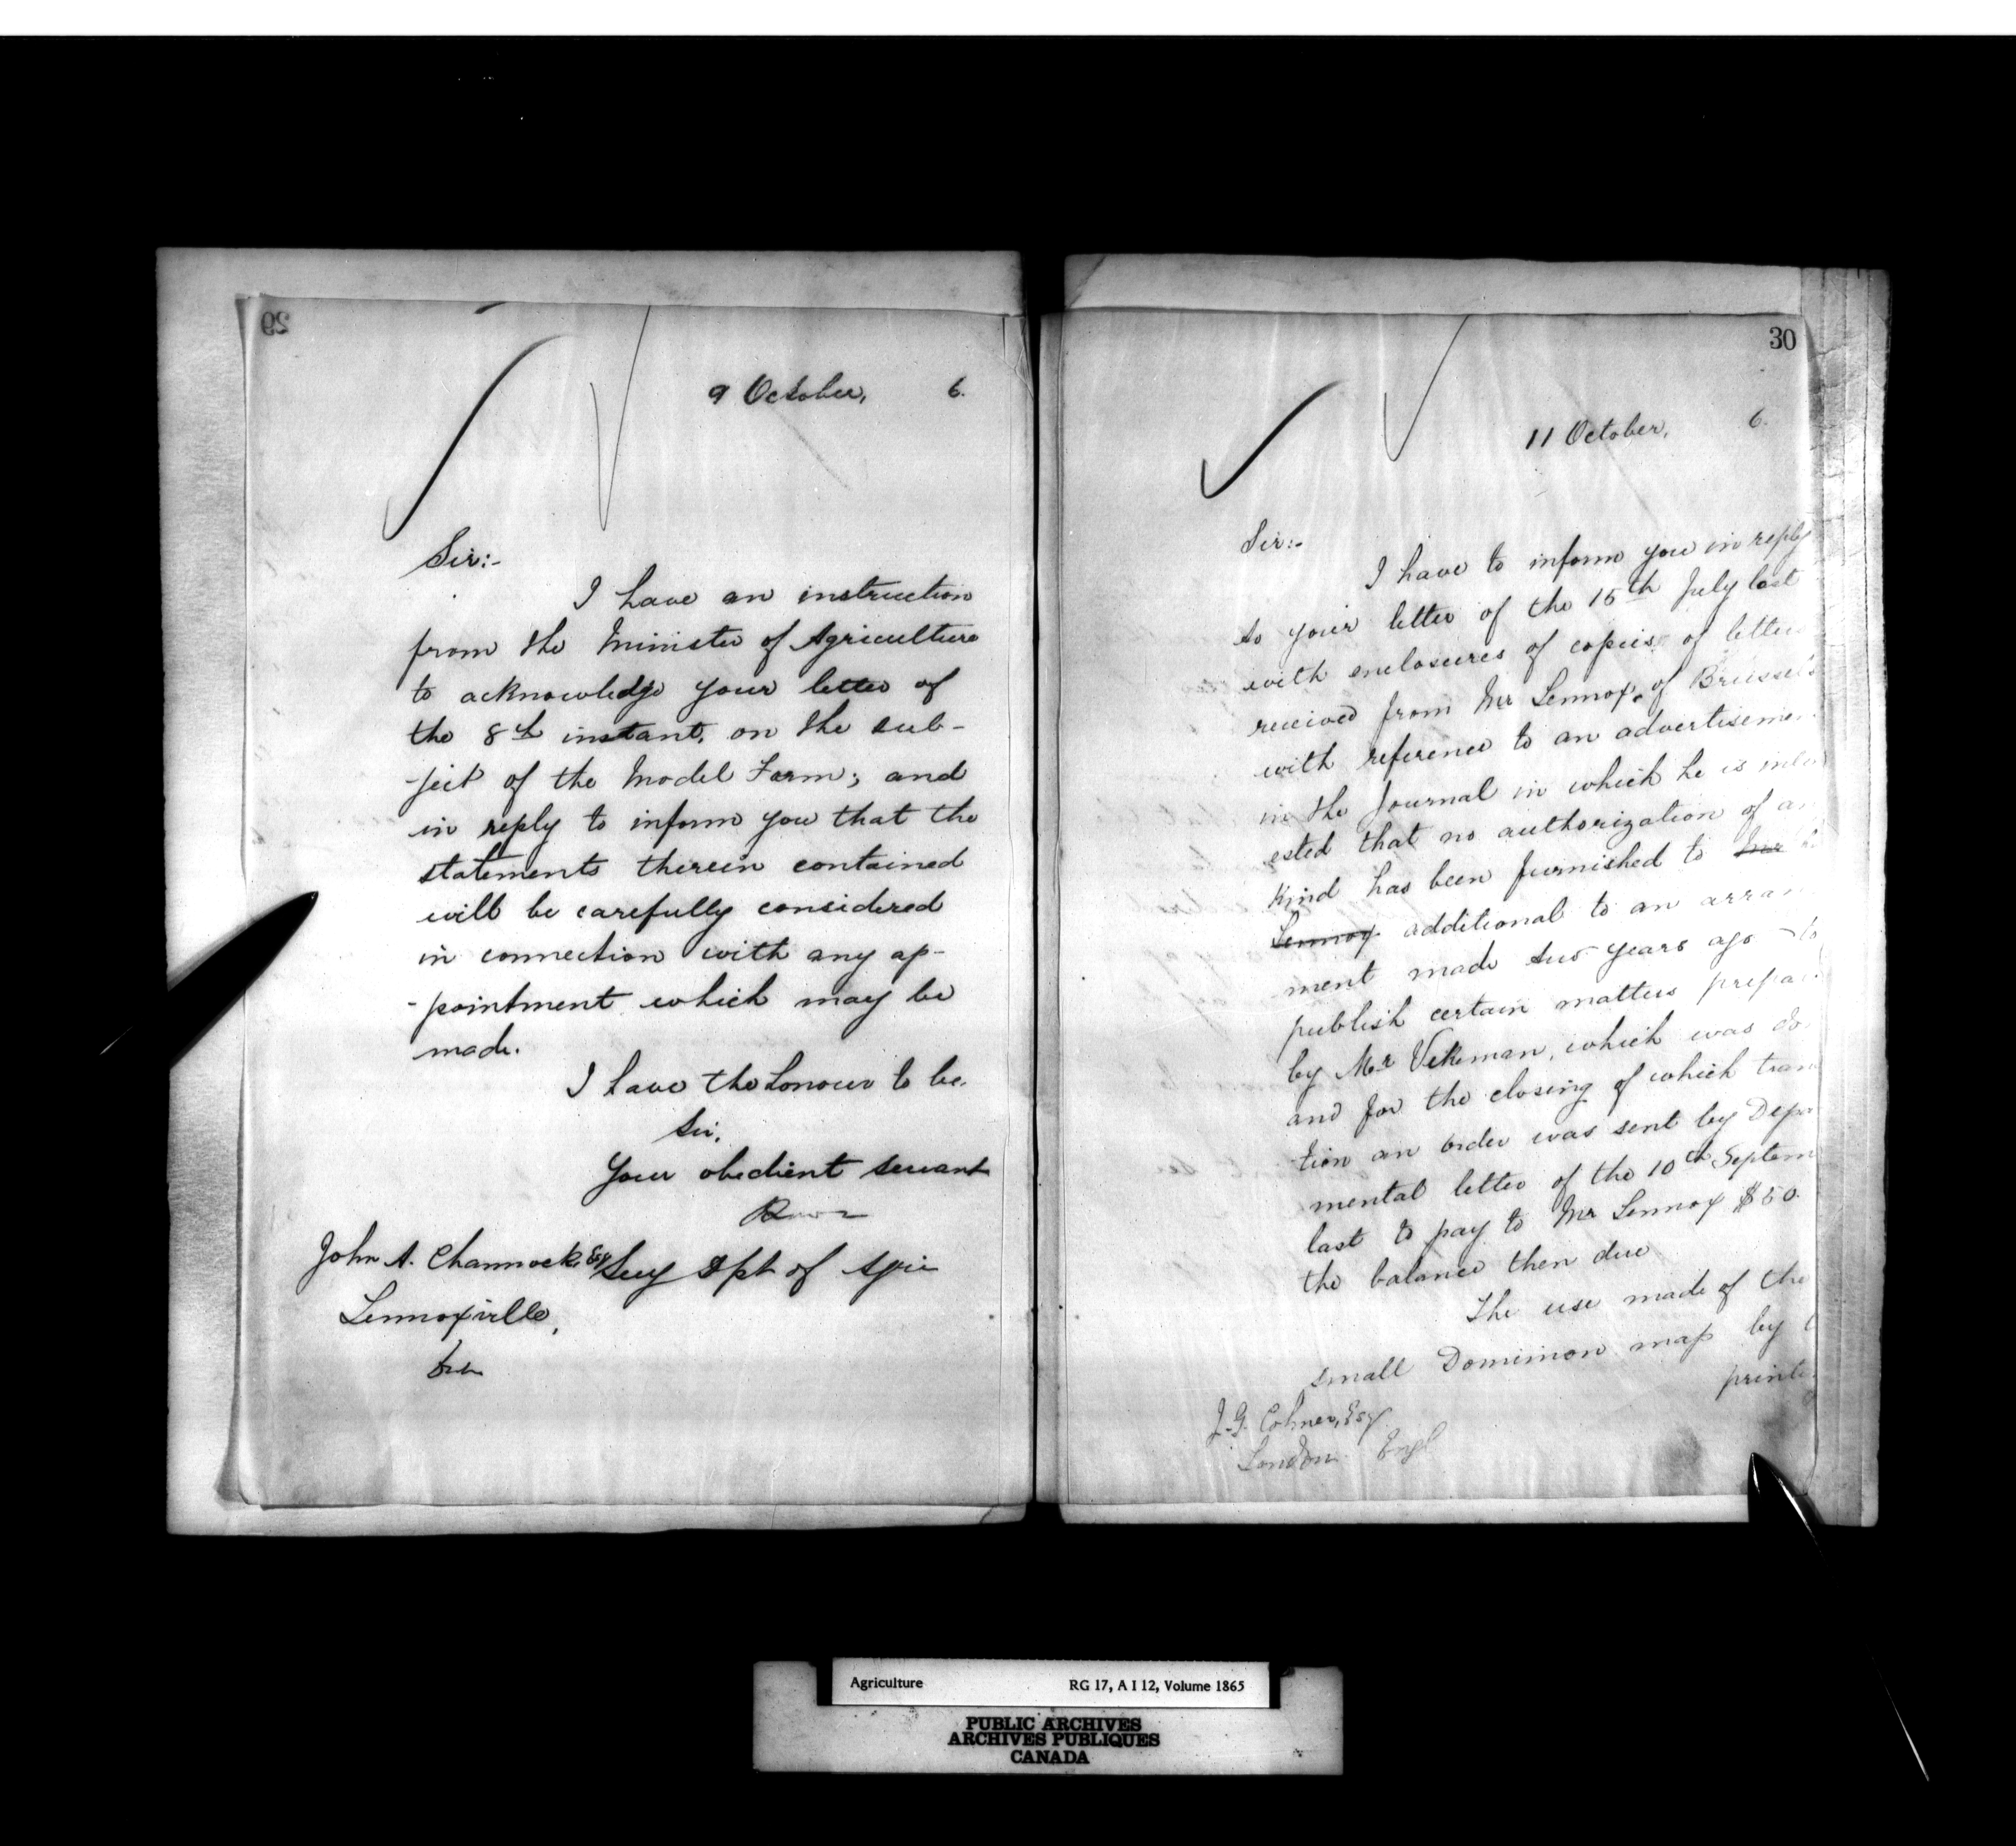 29
9 October, 6.
Sir:-
I have an instruction
from the Minister of Agriculture
to acknowledge your letter of
the 8th instant, on the sub-
-ject of the Model Farm; and
in reply to inform you that the
statements therein contained
will be carefully considered
in connection with any ap-
-pointment which may be
made.
I have the honour to be.
Sir,
Your obedient servant
John A. Channock, Esq
Secy Dpt of Agri
Lennoxville,
30
11 October, 6.
Sir:-
I have to inform you in reply
to your letter of the 15th July last
with enclosures of copies of letter
received from Mr Lennox, of Brussels
with reference to an advertisemen
in the Journal in which he is inter
ested that no authorization of a
kind has been furnished to Mr
Lennox additional to an arran
ment made two years ago to
publish certain matters prepa
by Mr Vekeman, which was do
and for the closing of which tran
tion an order was sent by Depar
mental letter of the 10th Septem
last to pay to Mr Lennox $50.
the balance then due
The use made of the
small Dominion map by
printe
J. G. Colmer, Esq
London Engl
Agriculture RG 17, A I 12, Volume 1865
PUBLIC ARCHIVES
ARCHIVES PUBLIQUES
CANADA